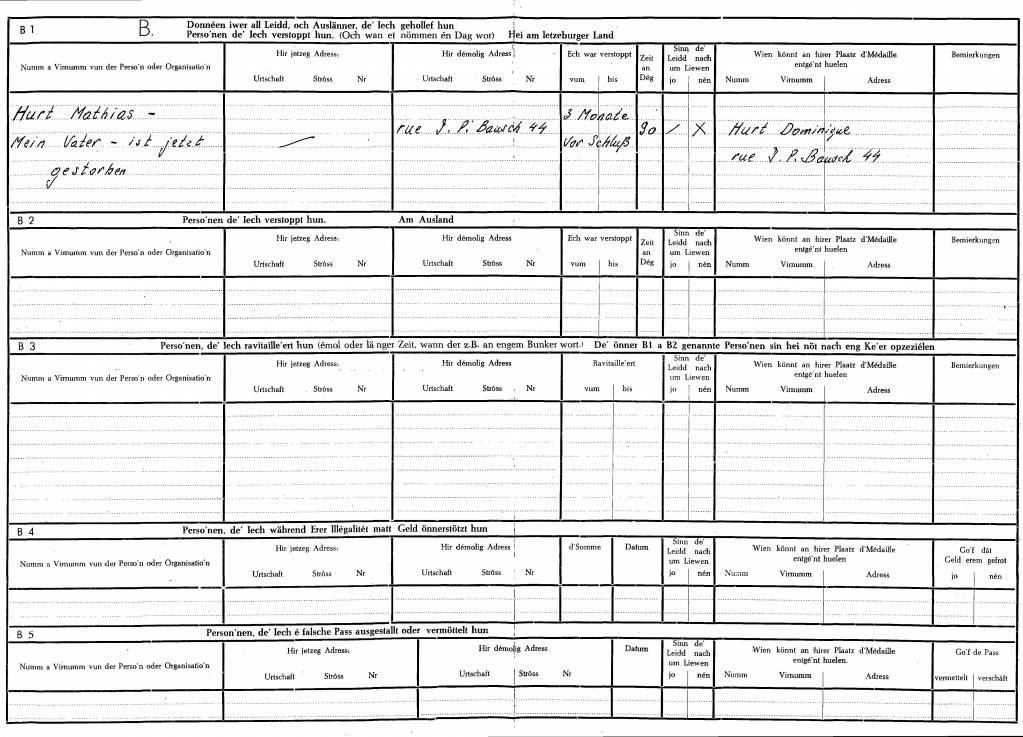 B 1 B. Donnéen iwer all Leidd, och Auslänner, de' Iech gehollef hun
Perso'nen de' Iech verstoppt hun. (Och wan et nömmen én Dag wor) Hei am letzeburger Land
Numm a Virnumm vun der Perso'n oder Organisatio'n
Hir jetzeg Adress:
Urtschaft Ströss Nr
Hir démolig Adress
Urtschaft Ströss Nr
Ech war verstoppt
vum bis
Zeit
an
Dég
Sinn de'
Leidd nach
um Liewen
jo nén
Wien könnt an hirer Plaatz d'Médaille
entgé'nt huelen
Numm Virnumm Adress
Bemierkungen
Hurt Mathias -
Mein Vater - ist jetzt
gestorben
—
rue J. P. Bausch 44
3 Monate
vor Schluß
90
/ X
Hurt Dominique
rue J. P. Bausch 44
B 2 Perso'nen de' Iech verstoppt hun. Am Ausland
Numm a Virnumm vun der Perso'n oder Organisatio'n
Hir jetzeg Adress:
Urtschaft Ströss Nr
Hir démolig Adress
Urtschaft Ströss Nr
Ech war verstoppt
vum bis
Zeit
an
Dég
Sinn de'
Leidd nach
um Liewen
jo nén
Wien könnt an hirer Plaatz d'Médaille
entgé'nt huelen
Numm Virnumm Adress
Bemierkungen
B 3 Perso'nen, de' Iech ravitaille'ert hun (émol oder länger Zeit, wann der z.B. an engem Bunker wort.) De' önner B1 a B2 genannte Perso'nen sin hei nöt nach eng Ke'er opzeziélen
Numm a Virnumm vun der Perso'n oder Organisatio'n
Hir jetzeg Adress:
Urtschaft Ströss Nr
Hir démolig Adress
Urtschaft Ströss Nr
Ravitaille'ert
vum bis
Sinn de'
Leidd nach
um Liewen
jo nén
Wien könnt an hirer Plaatz d'Médaille
entgé'nt huelen
Numm Virnumm Adress
Bemierkungen
B 4 Perso'nen, de' Iech während Erer Illégalitét matt Geld önnerstötzt hun
Numm a Virnumm vun der Perso'n oder Organisatio'n
Hir jetzeg Adress:
Urtschaft Ströss Nr
Hir démolig Adress
Urtschaft Ströss Nr
d'Somme
Datum
Sinn de'
Leidd nach
um Liewen
jo nén
Wien könnt an hirer Plaatz d'Médaille
entgé'nt huelen
Numm Virnumm Adress
Go'f dät
Geld erem gefrot
jo nén
B 5 Person'nen, de' Iech é falsche Pass ausgestallt oder vermöttelt hun
Numm a Virnumm vun der Perso'n oder Organisatio'n
Hir jetzeg Adress:
Urtschaft Ströss Nr
Hir démolig Adress
Urtschaft Ströss Nr
Datum
Sinn de'
Leidd nach
um Liewen
jo nén
Wien könnt an hirer Plaatz d'Médaille
entgé'nt huelen.
Numm Virnumm Adress
Go'f de Pass
vermettelt verschäft